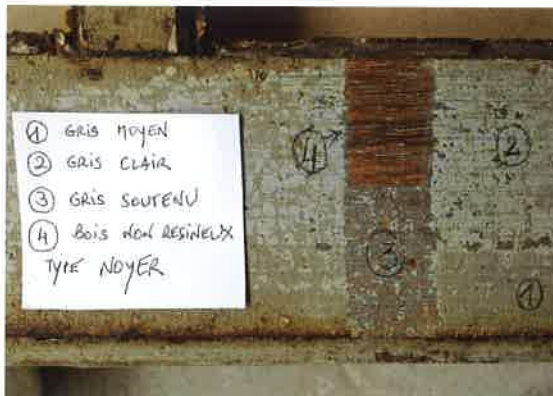 ① GRIS MOYEN
② GRIS CLAIR
③ GRIS SOUTENU
④ BOIS NON RESINEUX
TYPE NOYER
④
②
③
①